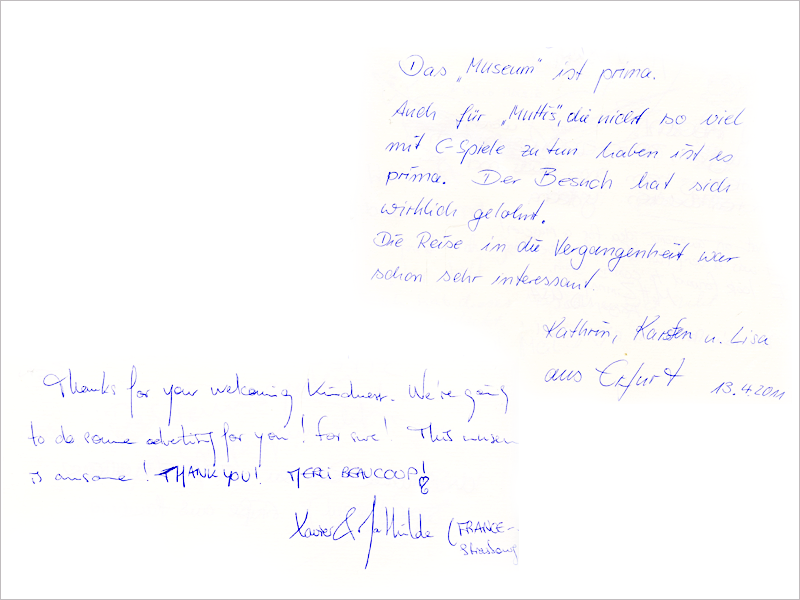 Das „Museum“ ist prima.
Auch für „Muttis“, die nicht so viel
mit C-Spiele zu tun haben ist es
prima. Der Besuch hat sich
wirklich gelohnt.
Die Reise in die Vergangenheit war
schon sehr interessant.
Kathrin, Karsten u. Lisa
aus Erfurt 13.4.2011
Thanks for your welcoming Kindness. We're going
to do some for you! For sure! This museum
is awsome! THANK YOU! MERCI BEAUCOUP!
Xavier & Mathilde (FRANCE-
Strasbourg